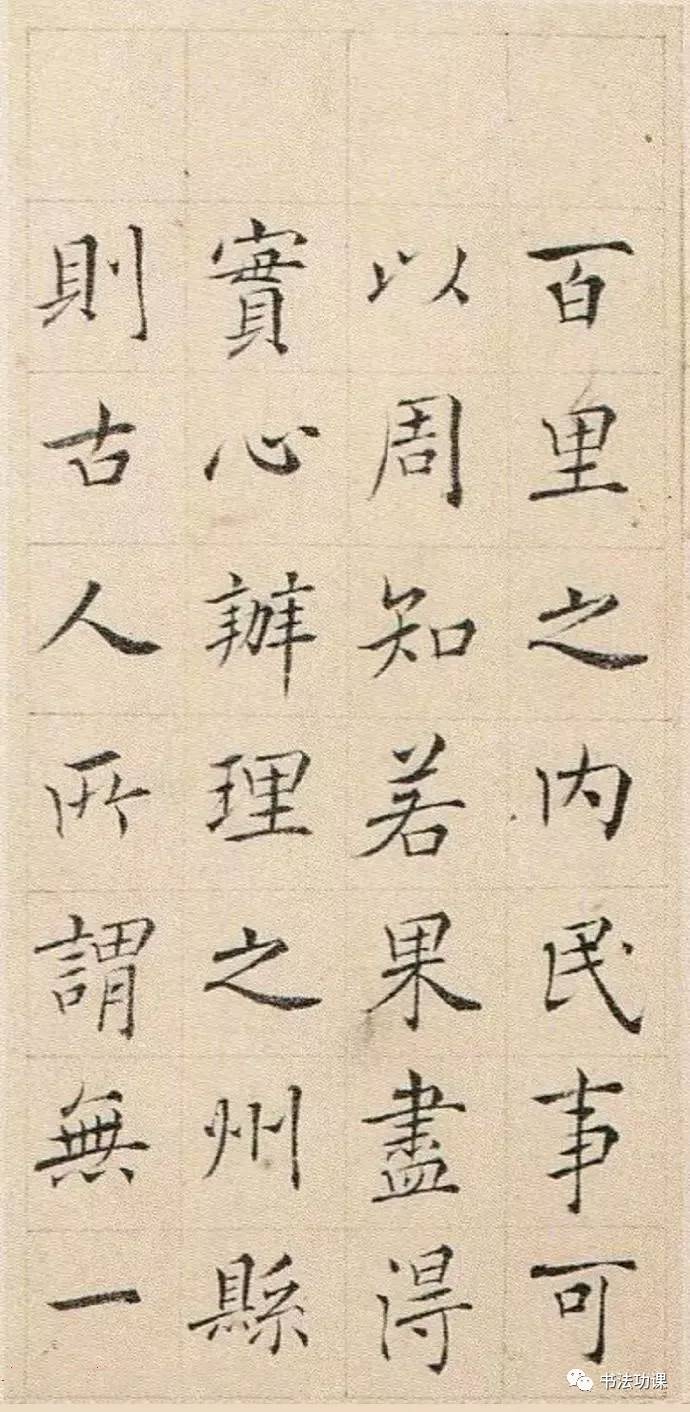 百里之内民事可
以周知若果盡得
實心辦理之州縣
則古人所謂無一
书法功课